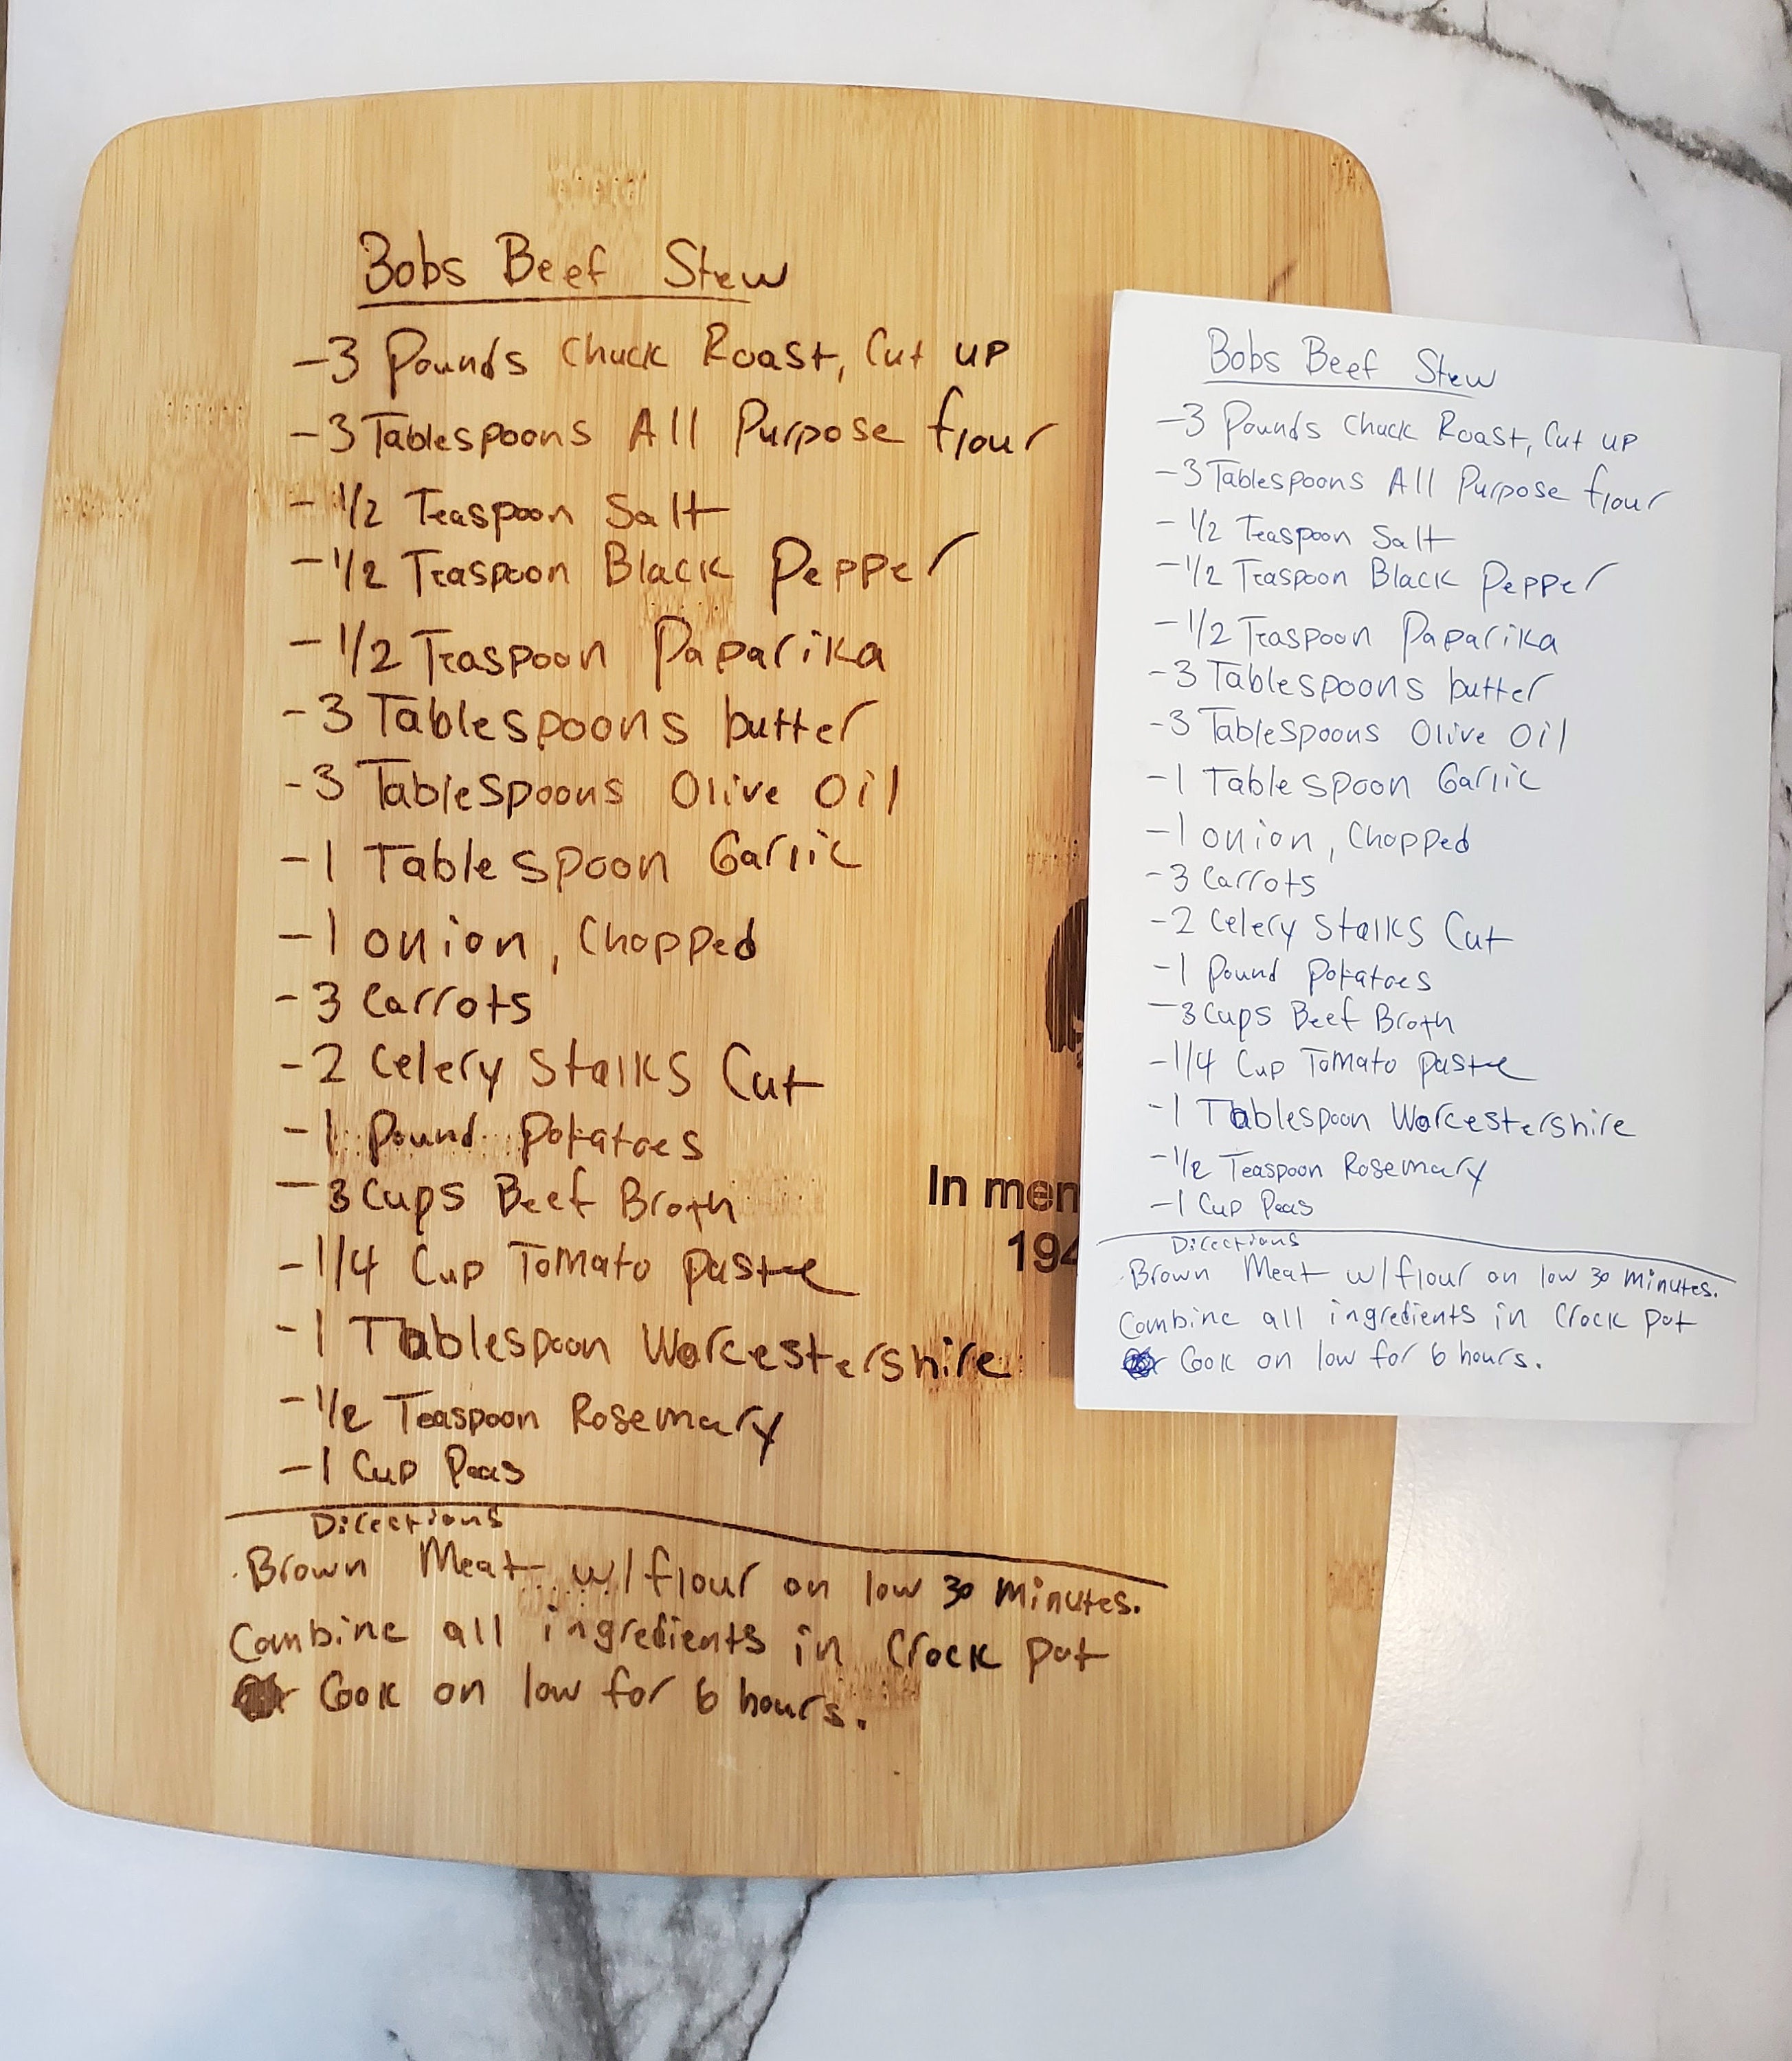 Bobs Beef Stew
-3 Pounds Chuck Roast, Cut up
-3 Tablespoons All Purpose flour
- 1/2 Teaspoon Salt
- 1/2 Teaspoon Black Pepper
- 1/2 Teaspoon Paparika
-3 Tablespoons butter
-3 Tablespoons Olive Oil
-1 Tablespoon Garlic
-1 onion, Chopped
-3 Carrots
-2 Celery Stalks Cut
-1 Pound Potatoes
-3 Cups Beef Broth
-1/4 Cup Tomato paste
-1 Tablespoon Worcestershire
-1/2 Teaspoon Rosemary
-1 Cup Peas
Directions
Brown Meat w/ flour on low 30 minutes.
Combine all ingredients in Crock pot
Cook on low for 6 hours.
In mem
194
Bobs Beef Stew
-3 Pounds Chuck Roast, Cut up
-3 Tablespoons All Purpose flour
- 1/2 Teaspoon Salt
- 1/2 Teaspoon Black Pepper
- 1/2 Teaspoon Paparika
-3 Tablespoons butter
-3 Tablespoons Olive Oil
-1 Tablespoon Garlic
-1 onion, Chopped
-3 Carrots
-2 Celery Stalks Cut
-1 Pound Potatoes
-3 Cups Beef Broth
-1/4 Cup Tomato paste
-1 Tablespoon Worcestershire
-1/2 Teaspoon Rosemary
-1 Cup Peas
Directions
Brown Meat w/ flour on low 30 minutes.
Combine all ingredients in Crock pot
Cook on low for 6 hours.